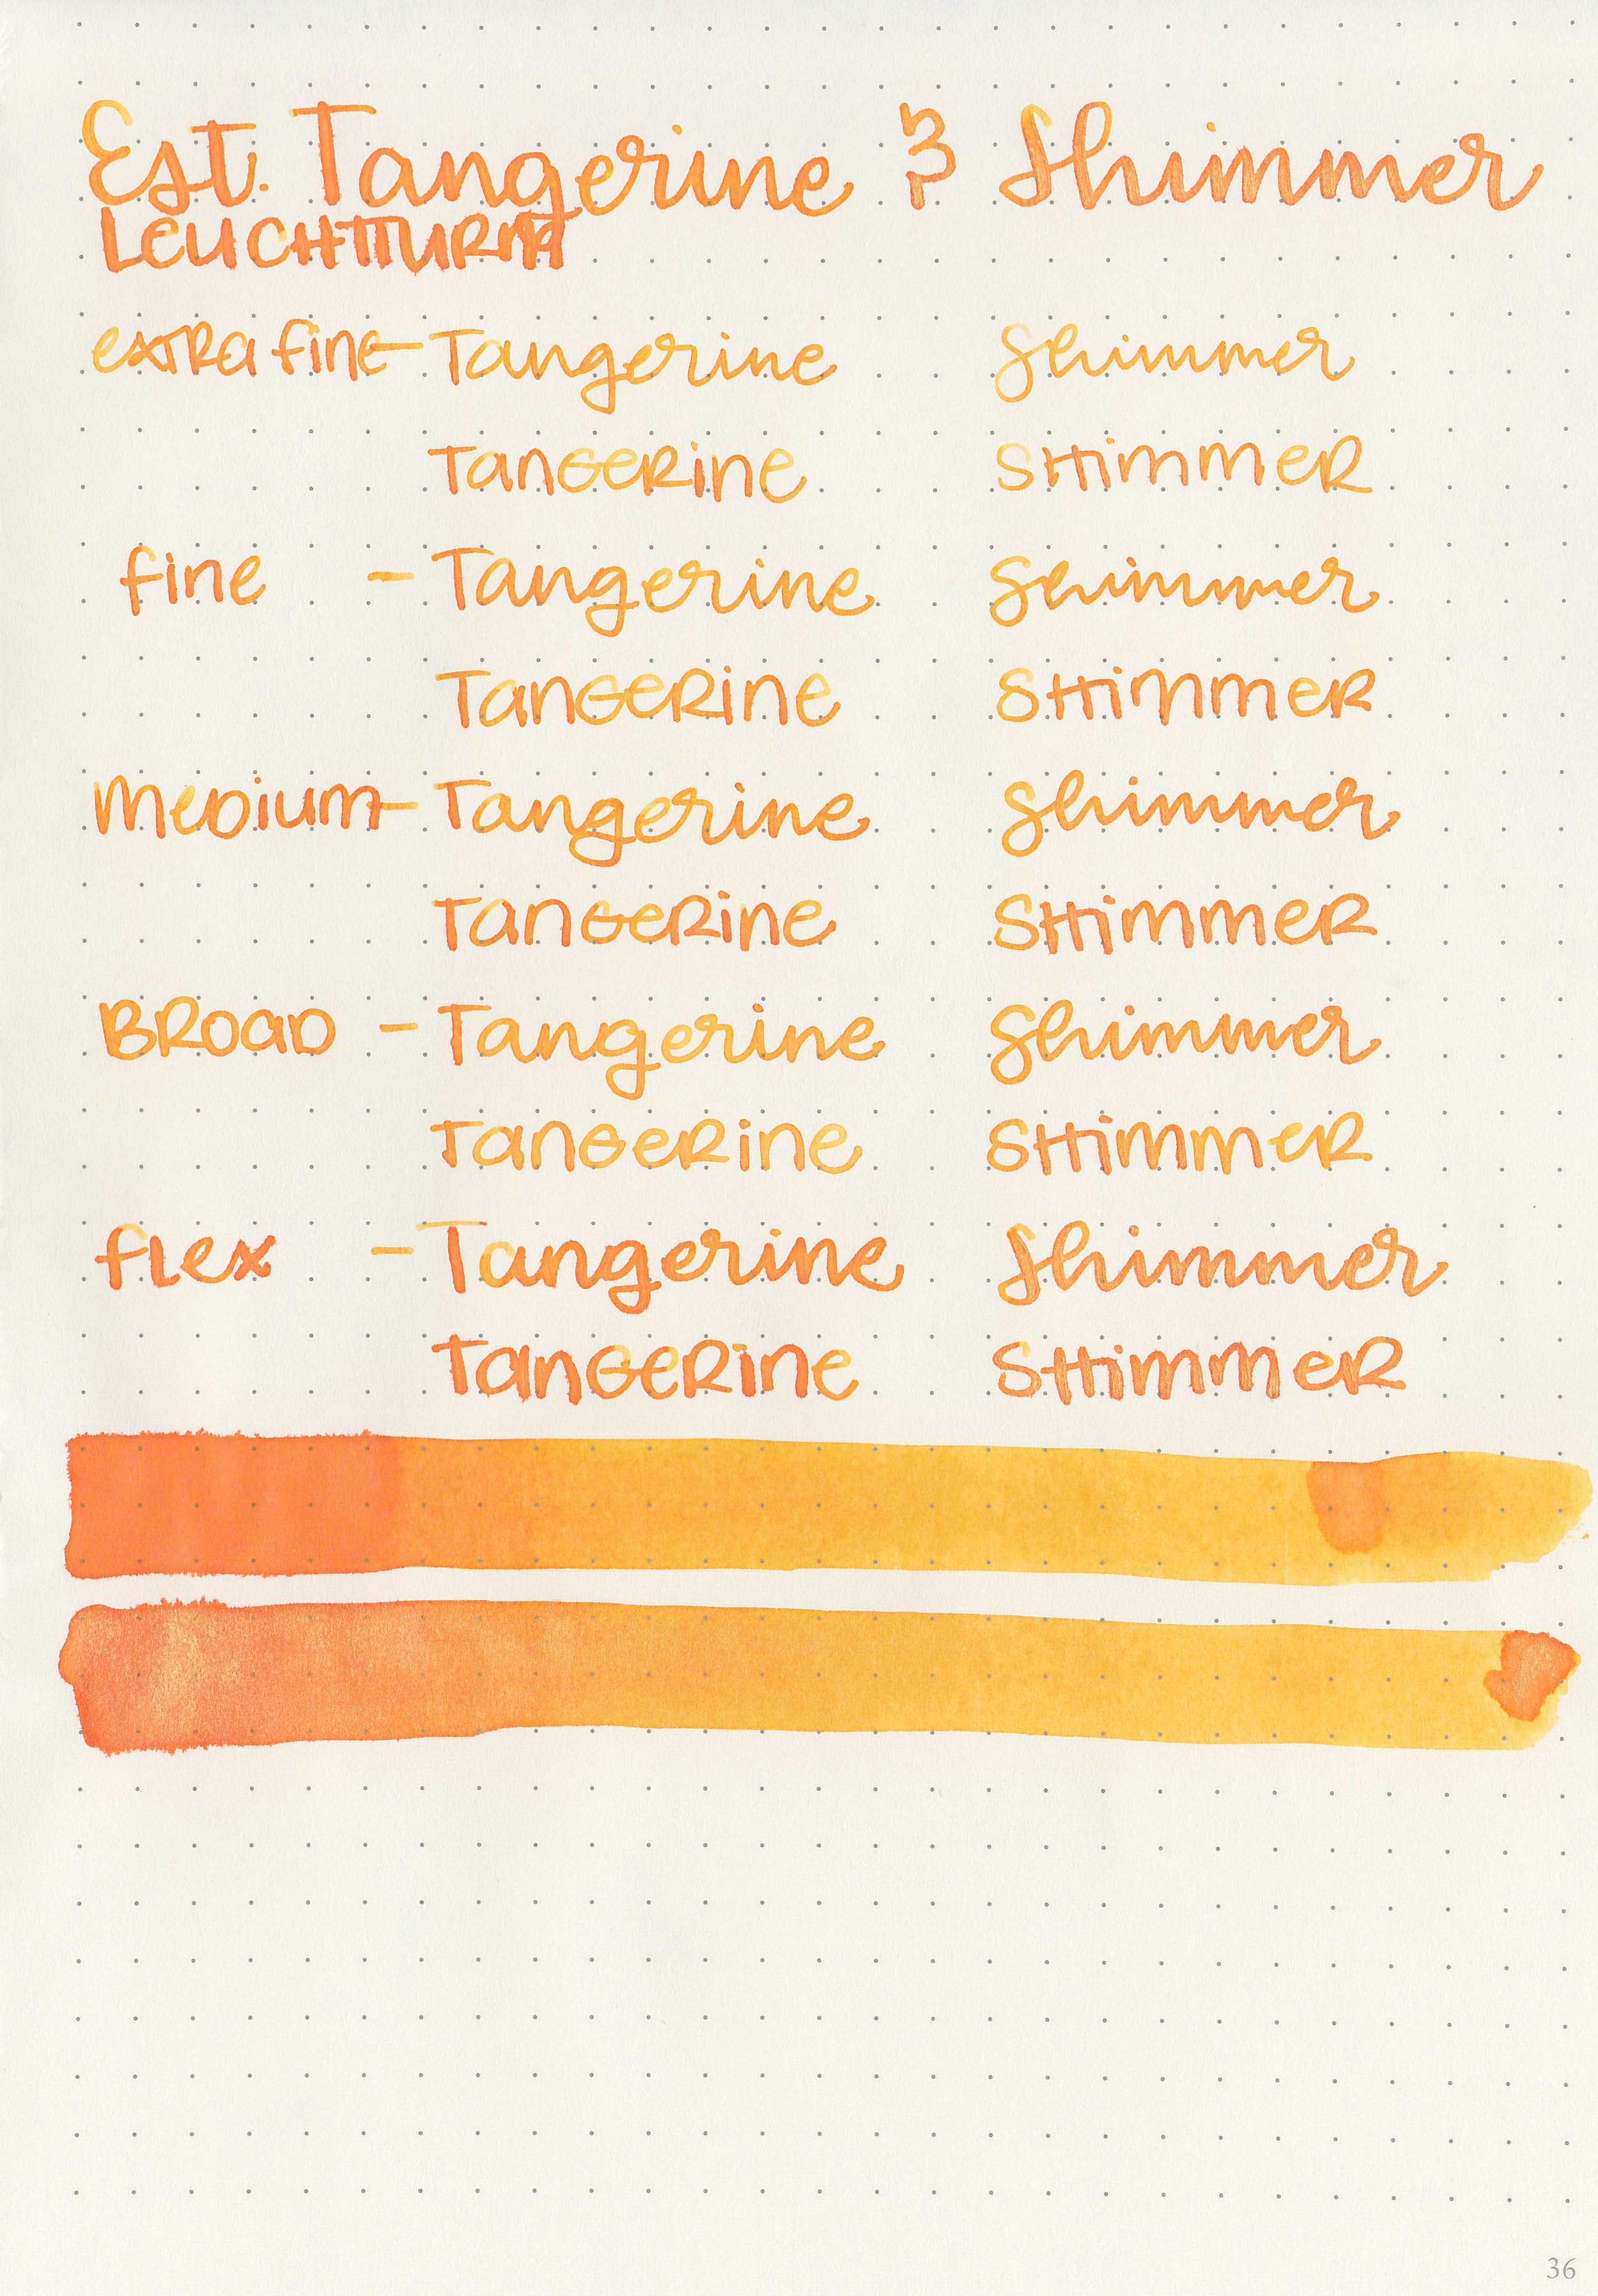 Est. Tangerine & Shimmer
LEUCHTTURM
extra fine - Tangerine Shimmer
TANGERINE SHIMMER
fine - Tangerine Shimmer
TANGERINE SHIMMER
medium - Tangerine Shimmer
TANGERINE SHIMMER
BROAD - Tangerine Shimmer
TANGERINE SHIMMER
flex - Tangerine Shimmer
TANGERINE SHIMMER
36